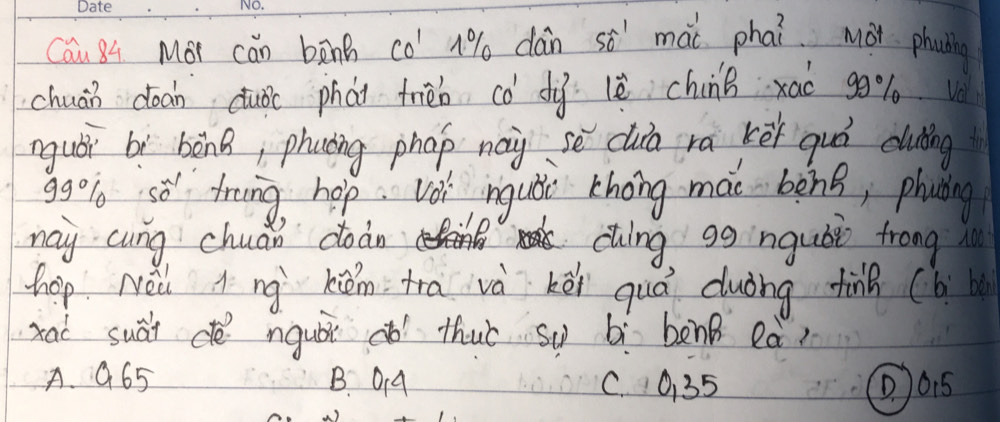 Date . . No.
Câu 84. Một căn bệnh có 1% dân số mắc phải. Một phương
chuẩn đoán được phát triển có tỷ lệ chính xác 99%. Với
người bị bệnh, phương pháp này sẽ đưa ra kết quả dương tính
99% số trường hợp. Với người không mắc bệnh, phương
này cũng chuẩn đoán đúng 99 người trong 100
hợp. Nếu 1 ng kiểm tra và kết quả dương tính (bị bệ
xác suất để người đó thực sự bị bệnh là?
A. 0,65 B. 0,4 C. 0,35 D. 0,5